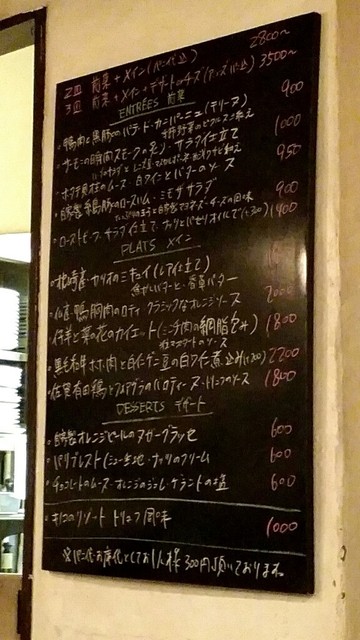 2皿 前菜 + メイン (パン代込) 2800〜
3皿 前菜 + メイン + デザート 3500〜
ENTRÉES 前菜
・鴨肉と黒豚のパテ・ド・カンパーニュ (テリーヌ) 900
ピクルス
・サーモンの瞬間スモーク サラダ仕立て 1000
・ホタテ貝柱のムース 白ワインとバターのソース 950
・自家製 ロースハム ミモザサラダ 900
・ローストビーフ サラダ仕立て 1400
PLATS メイン
・北崎産 カツオのミキュイ (レアイ仕立て)
焦がしバターと 香草バター
鴨胸肉のロティ クラシックなオレンジソース 2000
・仔羊と菜の花のカイエット (ミンチ肉の網脂包み) 1800
粒マスタードのソース
・黒毛和牛ホホ肉と白インゲン豆の白ワイン煮込み 2200
・佐賀有田鶏とフォアグラのバロティーヌ トリュフのソース 1800
DESSERTS デザート
・自家製オレンジピールのヌガーグラッセ 600
・パリブレスト (シュー生地・ナッツのクリーム 600
・チョコレートのムース オレンジのジュレ・ゲランドの塩 600
・キノコのリゾート トリュフ風味 1000
※パン代・お席代としてお1人様 300円頂いております。